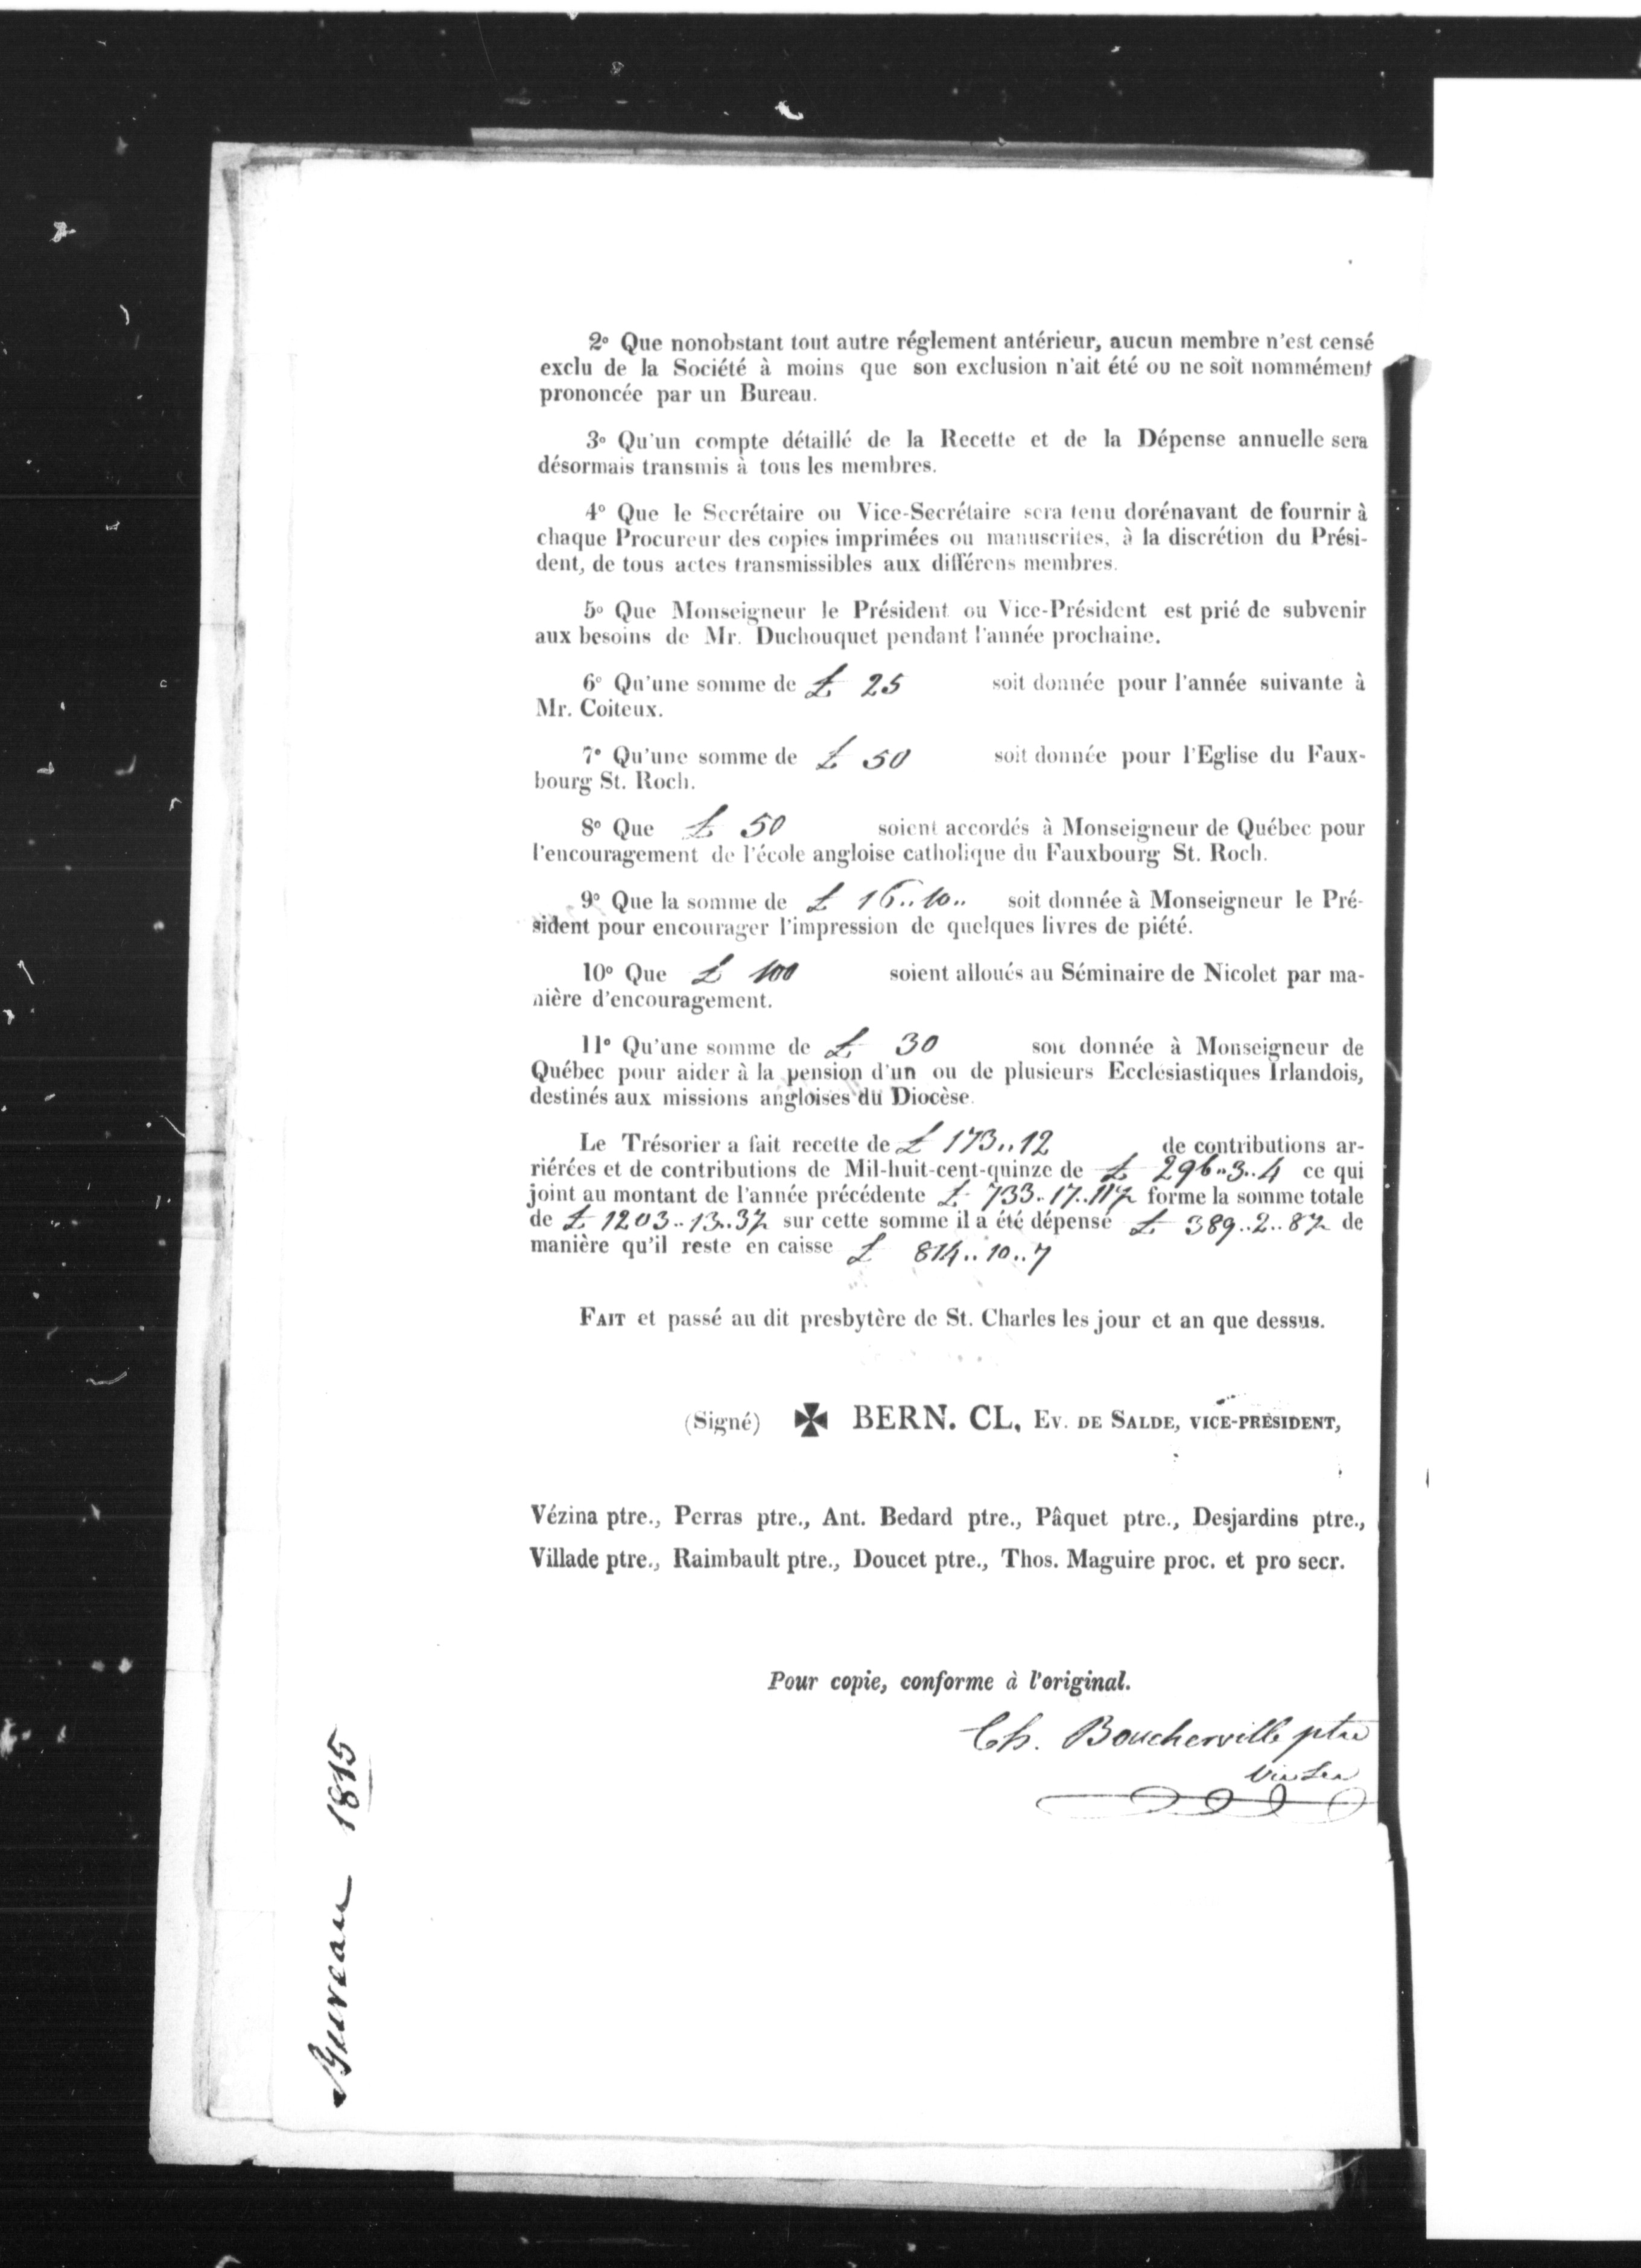 2º Que nonobstant tout autre réglement antérieur, aucun membre n'est censé
exclu de la Société à moins que son exclusion n'ait été ou ne soit nommément
prononcée par un Bureau.
3º Qu'un compte détaillé de la Recette et de la Dépense annuelle sera
désormais transmis à tous les membres.
4º Que le Secrétaire ou Vice-Secrétaire sera tenu dorénavant de fournir à
chaque Procureur des copies imprimées ou manuscrites, à la discrétion du Prési-
dent, de tous actes transmissibles aux différens membres.
5º Que Monseigneur le Président ou Vice-Président est prié de subvenir
aux besoins de Mr. Duchouquet pendant l'année prochaine.
6º Qu'une somme de £ 25 soit donnée pour l'année suivante à
Mr. Coiteux.
7º Qu'une somme de £ 50 soit donnée pour l'Eglise du Faux-
bourg St. Roch.
8º Que £ 50 soient accordés à Monseigneur de Québec pour
l'encouragement de l'école angloise catholique du Fauxbourg St. Roch.
9º Que la somme de £ 16..10.. soit donnée à Monseigneur le Pré-
sident pour encourager l'impression de quelques livres de piété.
10º Que £ 100 soient alloués au Séminaire de Nicolet par ma-
nière d'encouragement.
11º Qu'une somme de £ 30 soit donnée à Monseigneur de
Québec pour aider à la pension d'un ou de plusieurs Ecclésiastiques Irlandois,
destinés aux missions angloises du Diocèse.
Le Trésorier a fait recette de £ 173..12 de contributions ar-
riérées et de contributions de Mil-huit-cent-quinze de £ 296..3..4 ce qui
joint au montant de l'année précédente £ 733..17..11½ forme la somme totale
de £ 1203..13..3½ sur cette somme il a été dépensé £ 389..2..8½ de
manière qu'il reste en caisse £ 814..10..7
FAIT et passé au dit presbytère de St. Charles les jour et an que dessus.
(Signé) ✠ BERN. CL, EV. DE SALDE, VICE-PRÉSIDENT,
Vézina ptre., Perras ptre., Ant. Bedard ptre., Pâquet ptre., Desjardins ptre.,
Villade ptre., Raimbault ptre., Doucet ptre., Thos. Maguire proc. et pro secr.
Pour copie, conforme à l'original.
Ch. Boucherville ptre
Bureau 1815